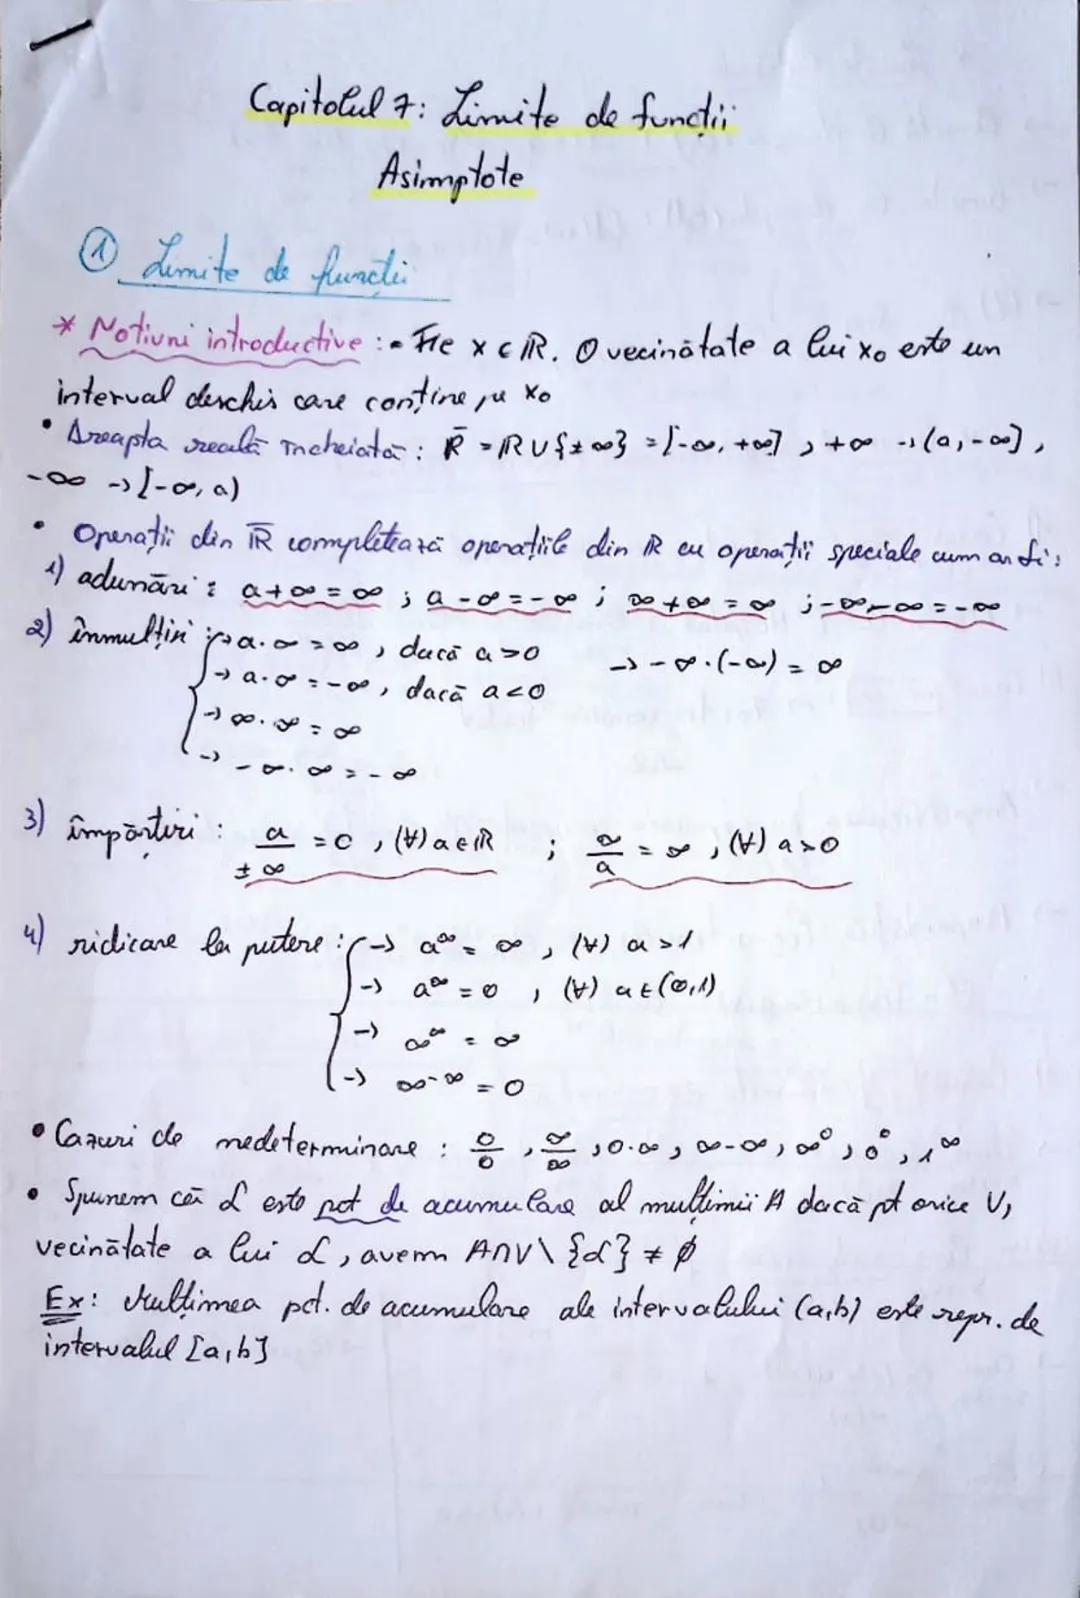 Capitolul 7: Limite de funcții
Asimptote
① Limite de funcții
* Noțiuni introductive : • Fie x ∈ ℝ. O vecinătate a lui x₀ este un
interval deschis care conține pe x₀
• Dreapta reală încheiată : ℝ̄ = ℝ ∪ {±∞} = [-∞, +∞] , +∞ → (a, -∞] ,
-∞ → [-∞, a)
• Operații din ℝ̄ completează operațiile din ℝ cu operații speciale cum ar fi :
1) adunări : a+∞ = ∞ ; a-∞ = -∞ ; ∞+∞ = ∞ ; -∞-∞ = -∞
2) înmulțiri : → a·∞ = ∞ , dacă a>0 → -∞·(-∞) = ∞
→ a·∞ = -∞ , dacă a<0
→ ∞·∞ = ∞
→ -∞·∞ = -∞
3) împărțiri : a/±∞ = 0 , (∀) a∈ℝ ; ∞/a = ∞ , (∀) a>0
4) ridicare la putere : → a^∞ = ∞ , (∀) a>1
→ a^∞ = 0 , (∀) a∈(0,1)
→ ∞^∞ = ∞
→ ∞^-∞ = 0
• Cazuri de nedeterminare : 0/0 , ∞/∞ , 0·∞ , ∞-∞ , ∞⁰ , 0⁰ , 1^∞
• Spunem că α este pct de acumulare al mulțimii A dacă pt orice V,
vecinătate a lui α, avem A∩V \ {α} ≠ ∅
Ex: Mulțimea pct. de acumulare ale intervalului (a,b) este repr. de
intervalul [a,b]